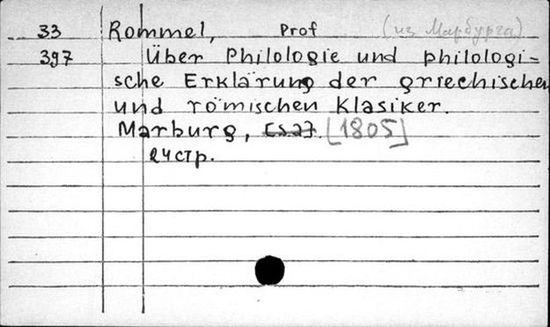 33 Rommel, Prof (из Марбурга)
397 Über Philologie und philologi-
sche Erklärung der griechischen
und römischen Klasiker.
Marburg, [1805]
24 стр.